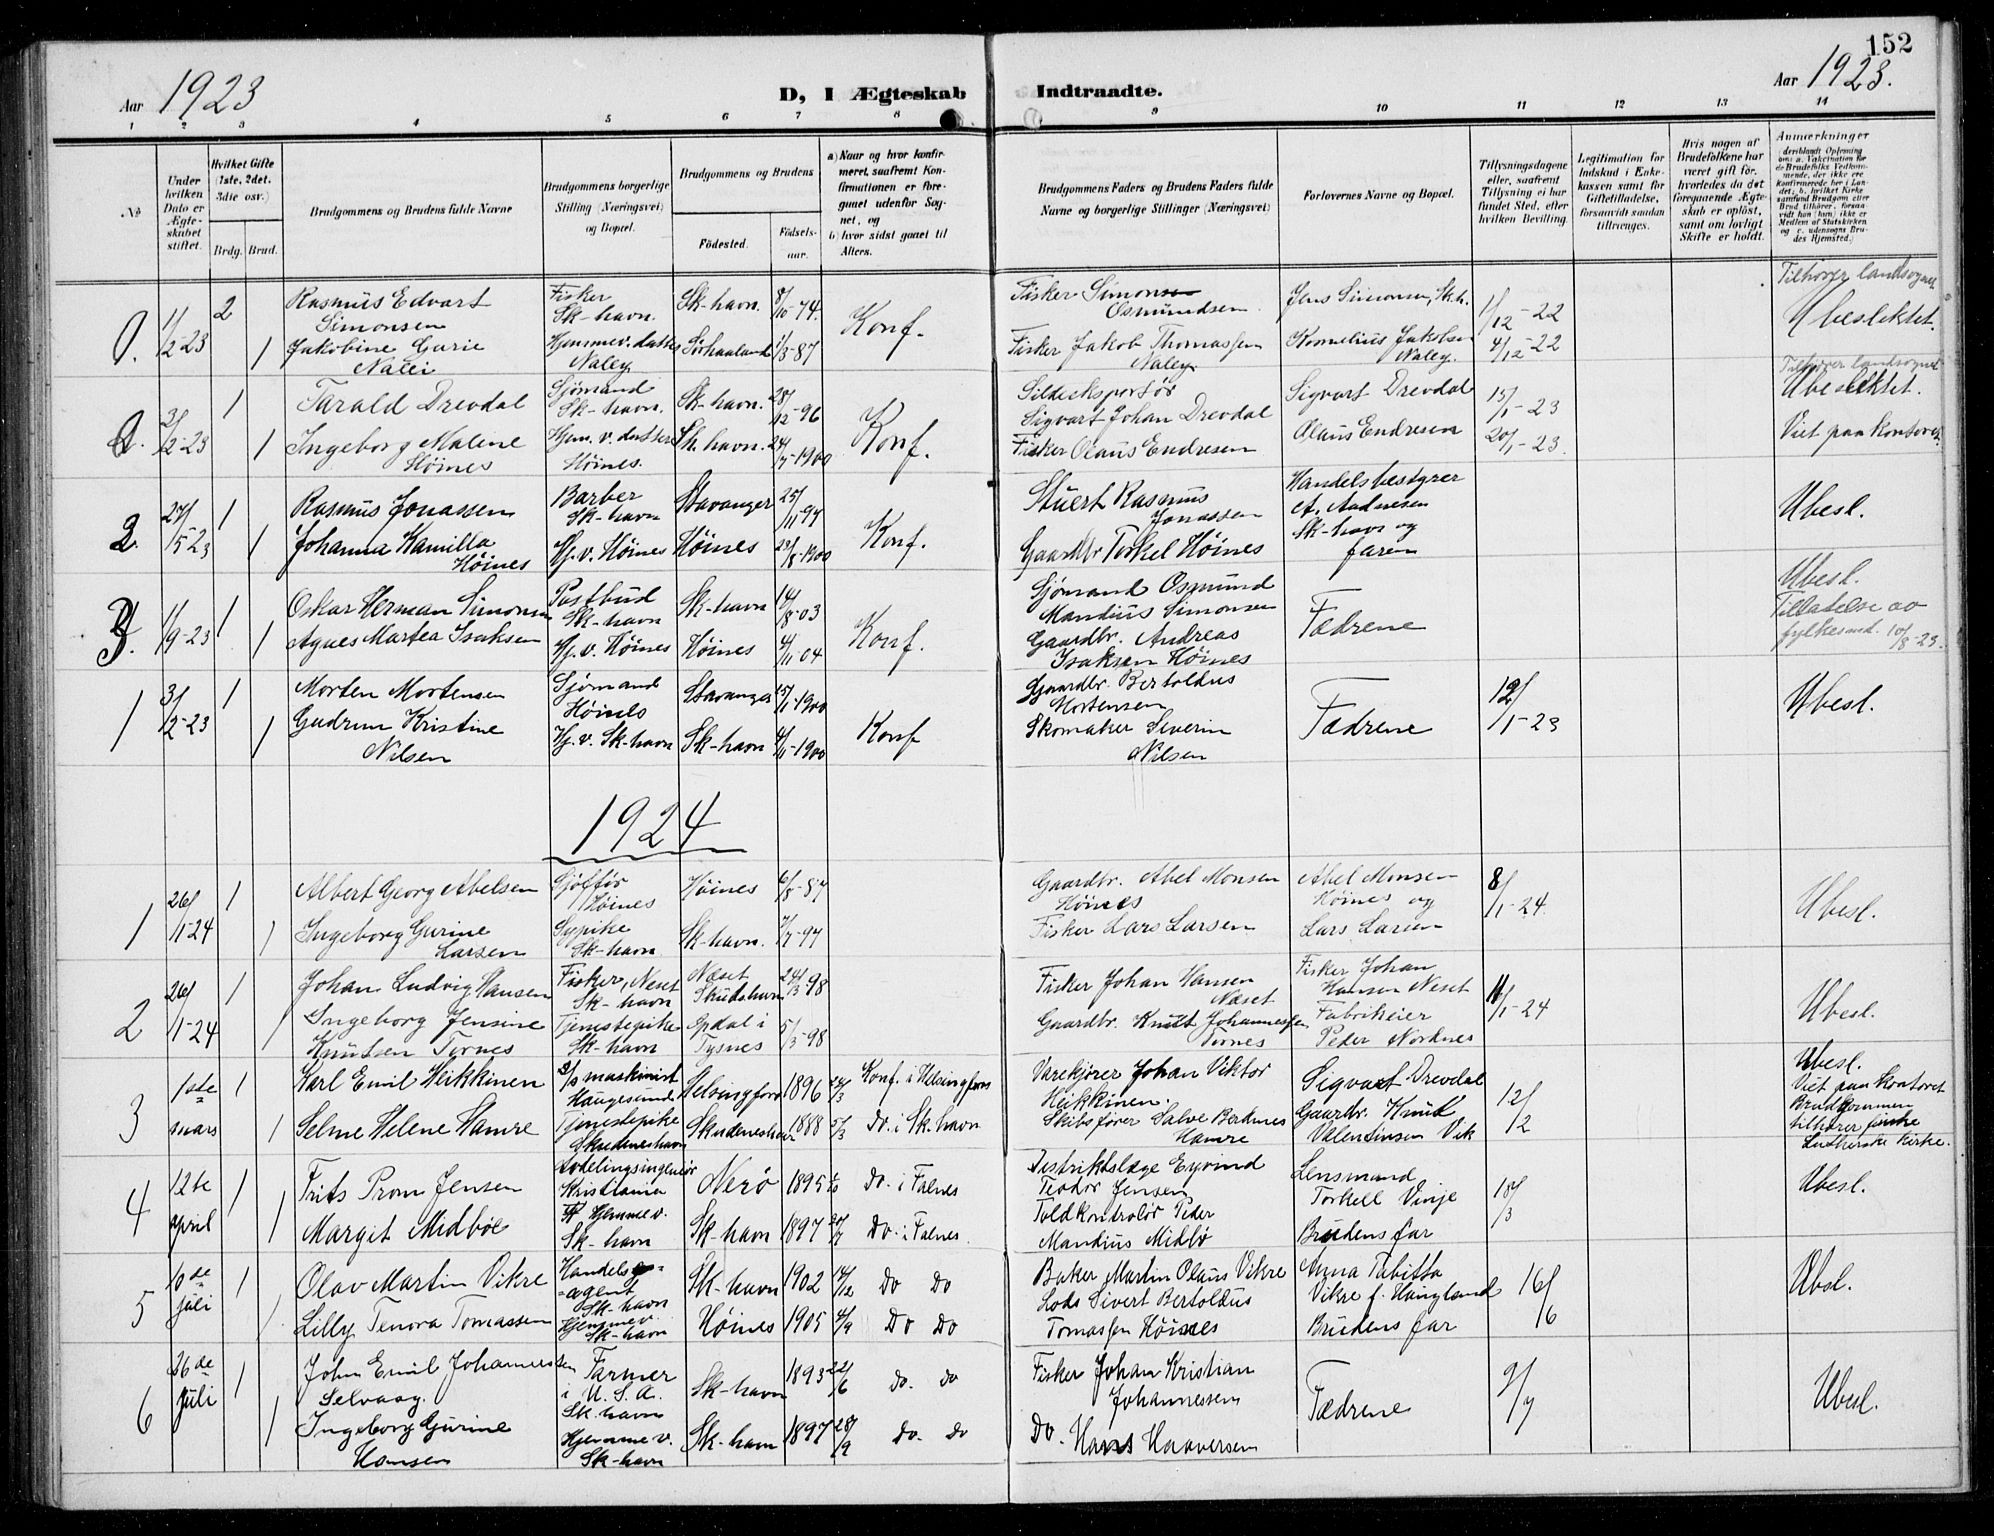 152
Aar 1923
D, I Ægteskab Indtraadte.
Aar 1923.
1 2 3 4 5 6 7 8 9 10 11 12 13 14
No
Under hvilken Dato er Ægteskabet stiftet.
Hvilket Gifte (1ste, 2det, 3die osv.)
Brdg. Brud.
Brudgommens og Brudens fulde Navne
Brudgommens borgerlige Stilling (Næringsvei) og Bopæl.
Brudgommens og Brudens
Födested. Födselsaar.
a) Naar og hvor konfirmeret, saafremt Konfirmationen er foregaaet udenfor Sognet, og
b) hvor sidst gaaet til Alters.
Brudgommens Faders og Brudens Faders fulde Navne og borgerlige Stillinger (Næringsvei)
Forlovernes Navne og Bopæl.
Tillysningsdagene eller, saafremt Tillysning ei har fundet Sted, efter hvilken Bevilling.
Legitimation for Indskud i Enkekassen samt for Giftetilladelse, forsaavidt saadan tiltrænges.
Hvis nogen af Brudefolkene har været gift før, hvorledes da det foregaaende Ægteskab er opløst, samt om lovligt Skifte er holdt.
Anmærkninger
0. 1/2-23 2 Rasmus Edvart Simonsen Fisker Sk-havn. Sk-havn. 8/10-74. Konf. Fisker Simon Osmundsen Jens Simonsen, Sk.h. 1/12-22 Tilhører landsognet. Ubeslektet.
1 Jakobine Gurie Nalei Hjemmev. datter Naley Sørhaaland 1/3-87 Fisker Jakob Thomassen Naley. Kornelius Jakobsen Naley. 4/12-22
0. 3/2-23 1 Tarald Drevdal Sjømand Sk-havn. Sk-havn. 28/12-96 Konf. Sildeksportør Sigvart Johan Drevdal Sigvart Drevdal 15/1-23 Tilhører landsognet Ubeslektet.
1 Ingeborg Malene Høines Hjem. v. datter Høines. Sk. havn. 24/7-1900 Fisker Olaus Endresen Olaus Endresen 20/1-23. Viet paa kontoret.
2. 27/5-23 1 Rasmus Jonassen Barber Sk-havn Stavanger 25/11-97 Konf. Stuert Rasmus Jonassen Handelsbestyrer A. Andresen Sk-havn og faren Ubesl.
1 Johanna Kamilla Høines Hj. v. Høines Høines 23/8-1900 Gaardbr Torkel Høines
3. 1/9-23 1 Oskar Herman Simonsen Postbud Sk-havn Sk-havn 14/8-03 Konf. Sjømand Osmund Mandius Simonsen Fædrene Ubesl. Tillatelse av fylkesmd. 10/8-23.
1 Agnes Martea Isaksen Hj. v. Høines Høines 4/11-04 Gaardbr. Andreas Isaksen Høines
1 3/2-23 1 Morten Mortensen Sjømand Høines Stavanger 15/1-1900 Konf Gaardbr. Bertoldus Mortensen Fædrene 12/1-23 Ubesl.
1 Gudrun Kristine Nilsen Hj. v. Sk-havn Sk-havn 4/11-1900 Skomaker Severin Nilsen
1924
1 26/1-24 1 Albert Georg Abelsen Sjøffør Høines Høines 6/8-87 Gaardbr. Abel Monsen Høines Abel Monsen Høines og 8/1-24. Ubesl.
1 Ingeborg Gurine Larsen Sypike Sk-havn. Sk-havn. 7/7-97 Fisker Lars Larsen Lars Larsen
2 26/1-24 1 Johan Ludvig Hansen Fisker, Neset Sk-havn Næset Skudshavn 24/3-98 Fisker Johan Hansen Næset Fisker Johan Hansen Neset 11/1-24 Ubesl.
1 Ingeborg Jensine Knutsen Tornes Tjenestepike Sk-havn Opdal i Tysnes 5/3-98 Gaardbr. Knut Johannessen Tornes Fabrikeier Peder Nordnes
3 1ste mars 1 Karl Emil Heikkinen D/S maskinist Haugesund Helsingfors 1896 24/3 Konf. i Helsingfors Varekjører Johan Viktor Heikkinen. Sigvart Drevdal 12/2 Ubesl. Viet paa Kontoret Brudgommen tilhører finske Lutherske Kirke.
1 Selme Helene Hamre Tjenestepike Skudeneshavn Skudeneshavn 1888 5/3 Do. i Sk.havn Skibsfører Salve Berdnes Hamre Gaardbr. Knut Valentinsen Vik
4 12te april 1 Frits Prom Jensen Avdelingsingeniør Kristiania Nerø 1895 Do. i Falnes Distriktslæge Eyvind Teodor Jensen Lensmand Torkell Vinje 18/3 Ubesl.
1 Margit Midbøe Hjemmev. Sk-havn Sk-havn 1897 20/7 Do. i Falnes. Toldkontrolør Peder Mandius Midbø Brudens far
5 10de juli 1 Olav Martin Vikre Handelsagent Sk-havn Sk-havn 1902 14/12 Do Do Baker Martin Olaus Vikre Anna Tabitta Vikre f. Haugland 16/6 Ubsl.
1 Lilly Tenora Tomassen Hjemmev. Sk-havn Høines 1905 4/9 Do Do Lods Sivert Bertoldus Tomassen Høines Brudens far
6 26de juli 1 John Emil Johannessen Selvaag. Farmer i U.S.A. Sk-havn Sk-havn 1893 22/6 Do. Do Fisker Johan Kristian Johannessen Fædrene 9/7 Ubesl.
1 Ingeborg Gurine Hansen Hjemme v. Sk-havn Sk-havn 1897 28/9 Do. Do Do. Hans Haaversen